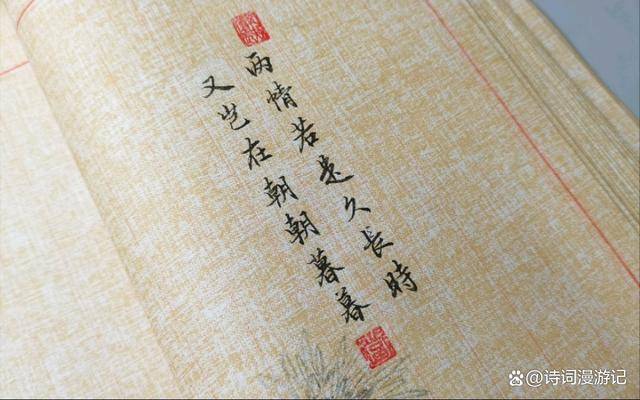 两情若是久長時
又岂在朝朝暮暮
@诗词漫游记